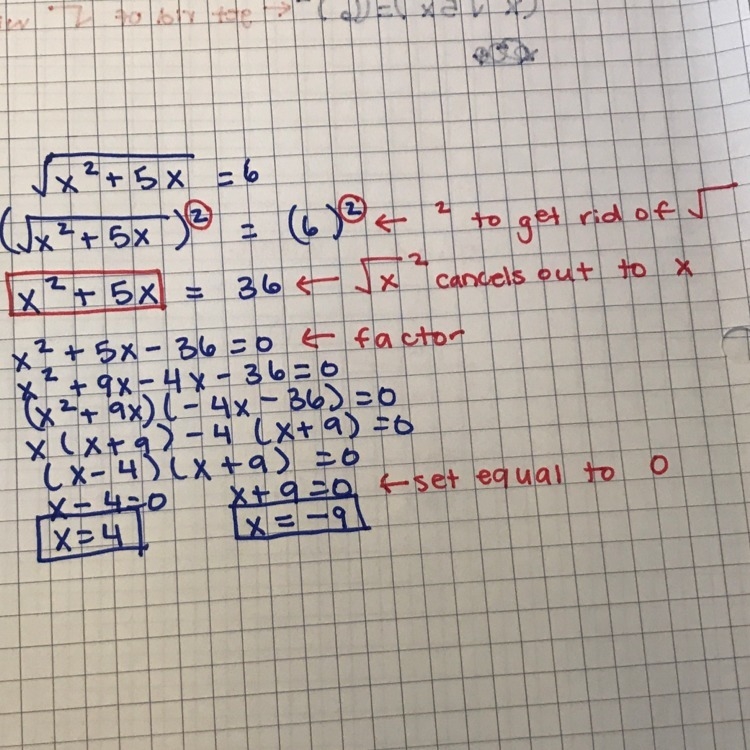 √x² + 5x = 6
(√x² + 5x)² = (6)² ← ² to get rid of √
x² + 5x = 36 ← √x ² cancels out to x
x² + 5x - 36 = 0 ← factor
x² + 9x - 4x - 36 = 0
(x² + 9x)(- 4x - 36) = 0
x(x+9) - 4 (x+9) = 0
(x-4)(x+9) = 0
x-4=0 x+9=0 ← set equal to 0
x=4 x=-9